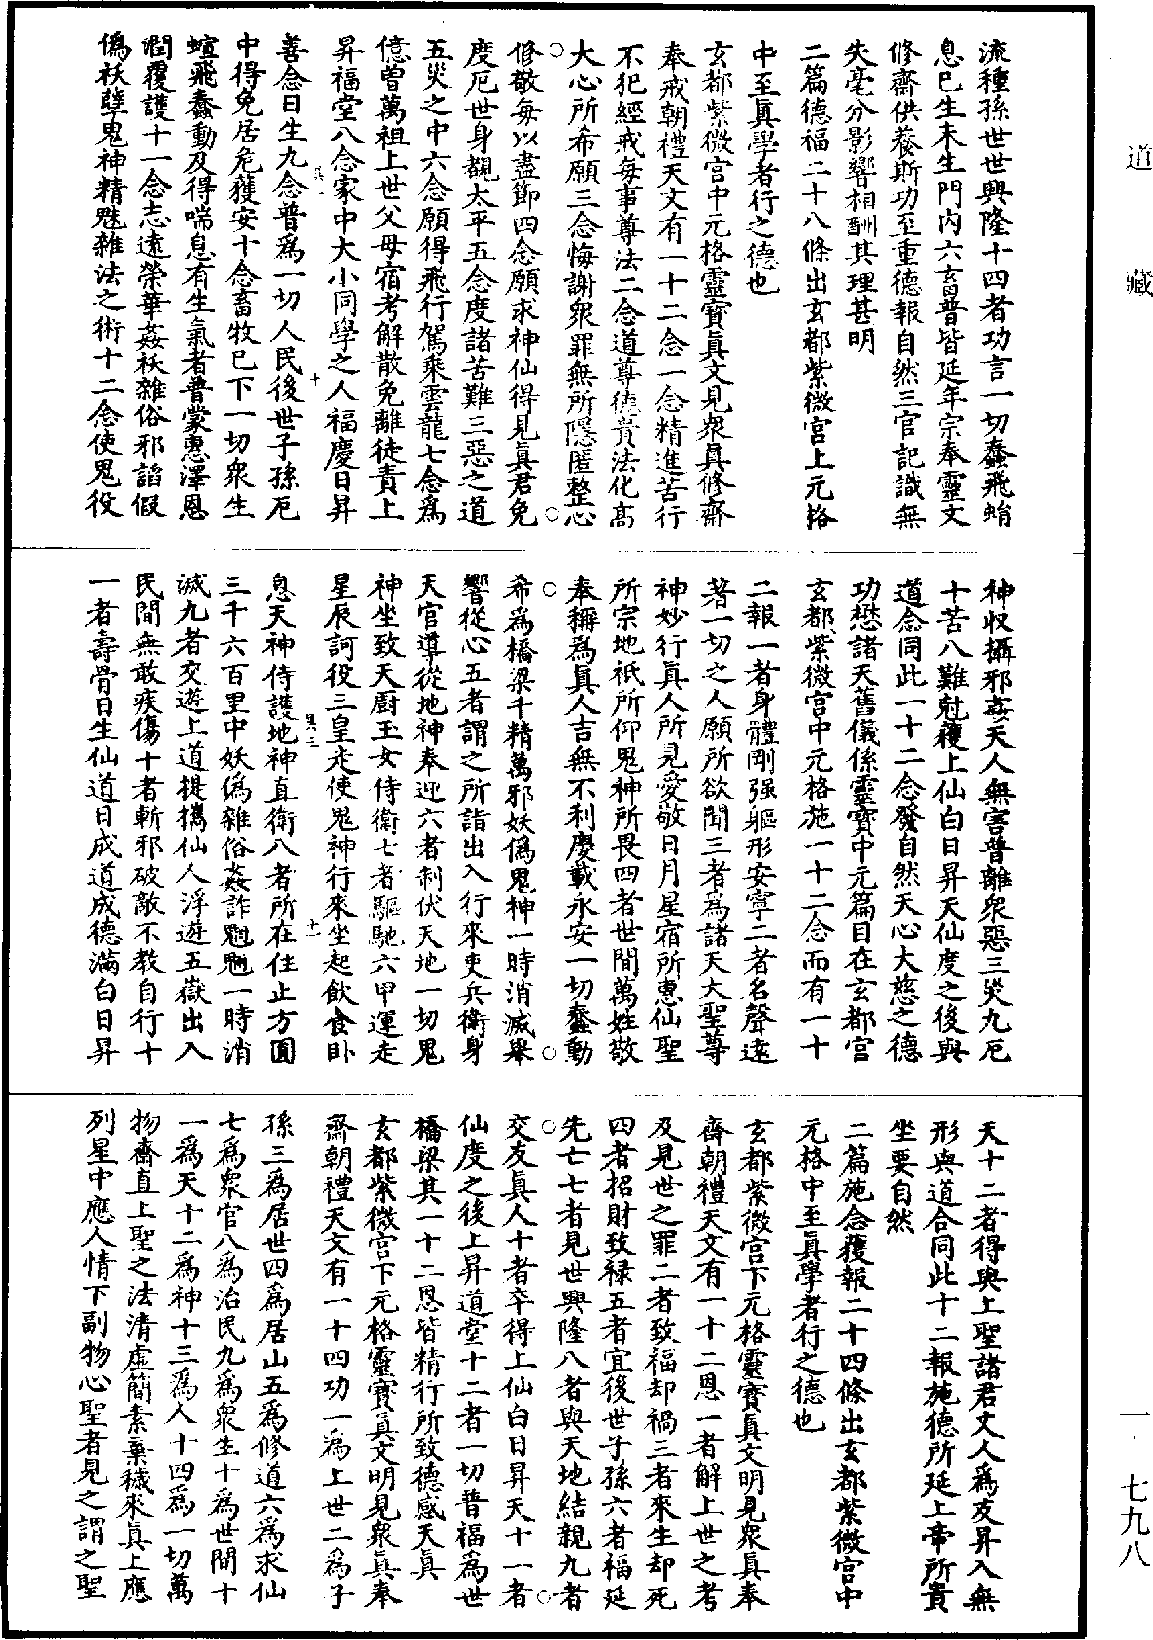 道藏
一・七九八
流種孫世世興隆十四者功言一切蠢飛蛸
息巳生未生門內六畜普皆延年宗奉靈文
修齋供養斯功至重德報自然三官記識無
失毫分影響相酬其理甚明
二篇德福二十八條出玄都紫微宮上元格
中至眞學者行之德也
玄都紫微宮中元格靈寶眞文見衆眞修齋
奉戒朝禮天文有一十二念一念精進苦行
不犯經戒每事尊法二念道尊德貴法化高
大心所希願三念悔謝衆罪無所隱匿整心
修敬每以盡節四念願求神仙得見眞君免
度厄世身覩太平五念度諸苦難三惡之道
五災之中六念願得飛行駕乘雲龍七念爲
億曽萬祖上世父母宿考解散免離徒責上
昇福堂八念家中大小同學之人福慶日昇
善念日生九念普爲一切人民後世子孫厄
中得免居危獲安十念畜牧巳下一切衆生
蝖飛蠢動及得喘息有生氣者普蒙惠澤恩
潤覆護十一念志遠榮華姦祅雜俗邪諂假
僞祅孽鬼神精魅雜法之術十二念使鬼役
神收攝邪姦天人無害普離衆惡三災九厄
十苦八難尅獲上仙白日昇天仙度之後與
道念同此一十二念發自然天心大慈之德
功懋諸天舊儀係靈寶中元篇目在玄都宮
玄都紫微宮中元格施一十二念而有一十
二報一者身體剛强軀形安寧二者名聲遠
著一切之人願所欲聞三者爲諸天大聖尊
神妙行眞人所見愛敬日月星宿所惠仙聖
所宗地祇所仰鬼神所畏四者世間萬姓敬
奉稱爲眞人吉無不利慶載永安一切蠢動
希爲橋梁千精萬邪妖僞鬼神一時消滅舉
響從心五者謂之所詣出入行來吏兵衛身
天官導從地神奉迎六者制伏天地一切鬼
神坐致天厨玉女侍衛七者驅馳六甲運走
星辰訶役三皇走使鬼神行來坐起飲食卧
息天神侍護地神直衛八者所在住止方圓
三千六百里中妖僞雜俗姦詐魍魎一時消
滅九者交遊上道提攜仙人浮遊五嶽出入
民間無敢疾傷十者斬邪破敵不教自行十
一者壽骨日生仙道日成道成德滿白日昇
天十二者得與上聖諸君丈人爲友昇入無
形與道合同此十二報施德所延上帝所貴
坐要自然
二篇施念獲報二十四條出玄都紫微宮中
元格中至眞學者行之德也
玄都紫微宮下元格靈寶眞文明見衆眞奉
齋朝禮天文有一十二恩一者解上世之考
及見世之罪二者致福却禍三者來生却死
四者招財致祿五者宜後世子孫六者福延
先亡七者見世興隆八者與天地結親九者
交友眞人十者卒得上仙白日昇天十一者
仙度之後上昇道堂十二者一切普福爲世
橋梁其一十二恩皆精行所致德感天眞
玄都紫微宮下元格靈寶眞文明見衆眞奉
齋朝禮天文有一十四功一爲上世二爲子
孫三爲居世四爲居山五爲修道六爲求仙
七爲衆官八爲治民九爲衆生十爲世間十
一爲天十二爲神十三爲人十四爲一切萬
物齋直上聖之法清虛簡素棄穢來眞上應
列星中應人情下副物心聖者見之謂之聖